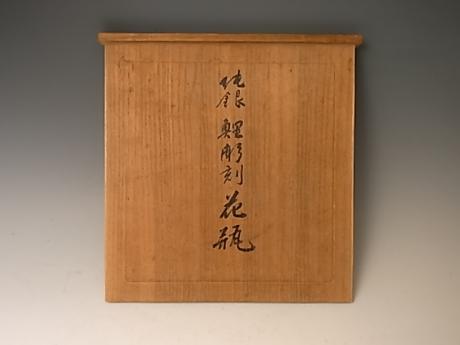 純銀鯉彫刻花瓶